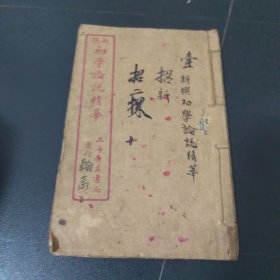 壹 新撰初學論說精華
招新
招二探 十
新撰
初學論說精華
上海廣益書局
發行